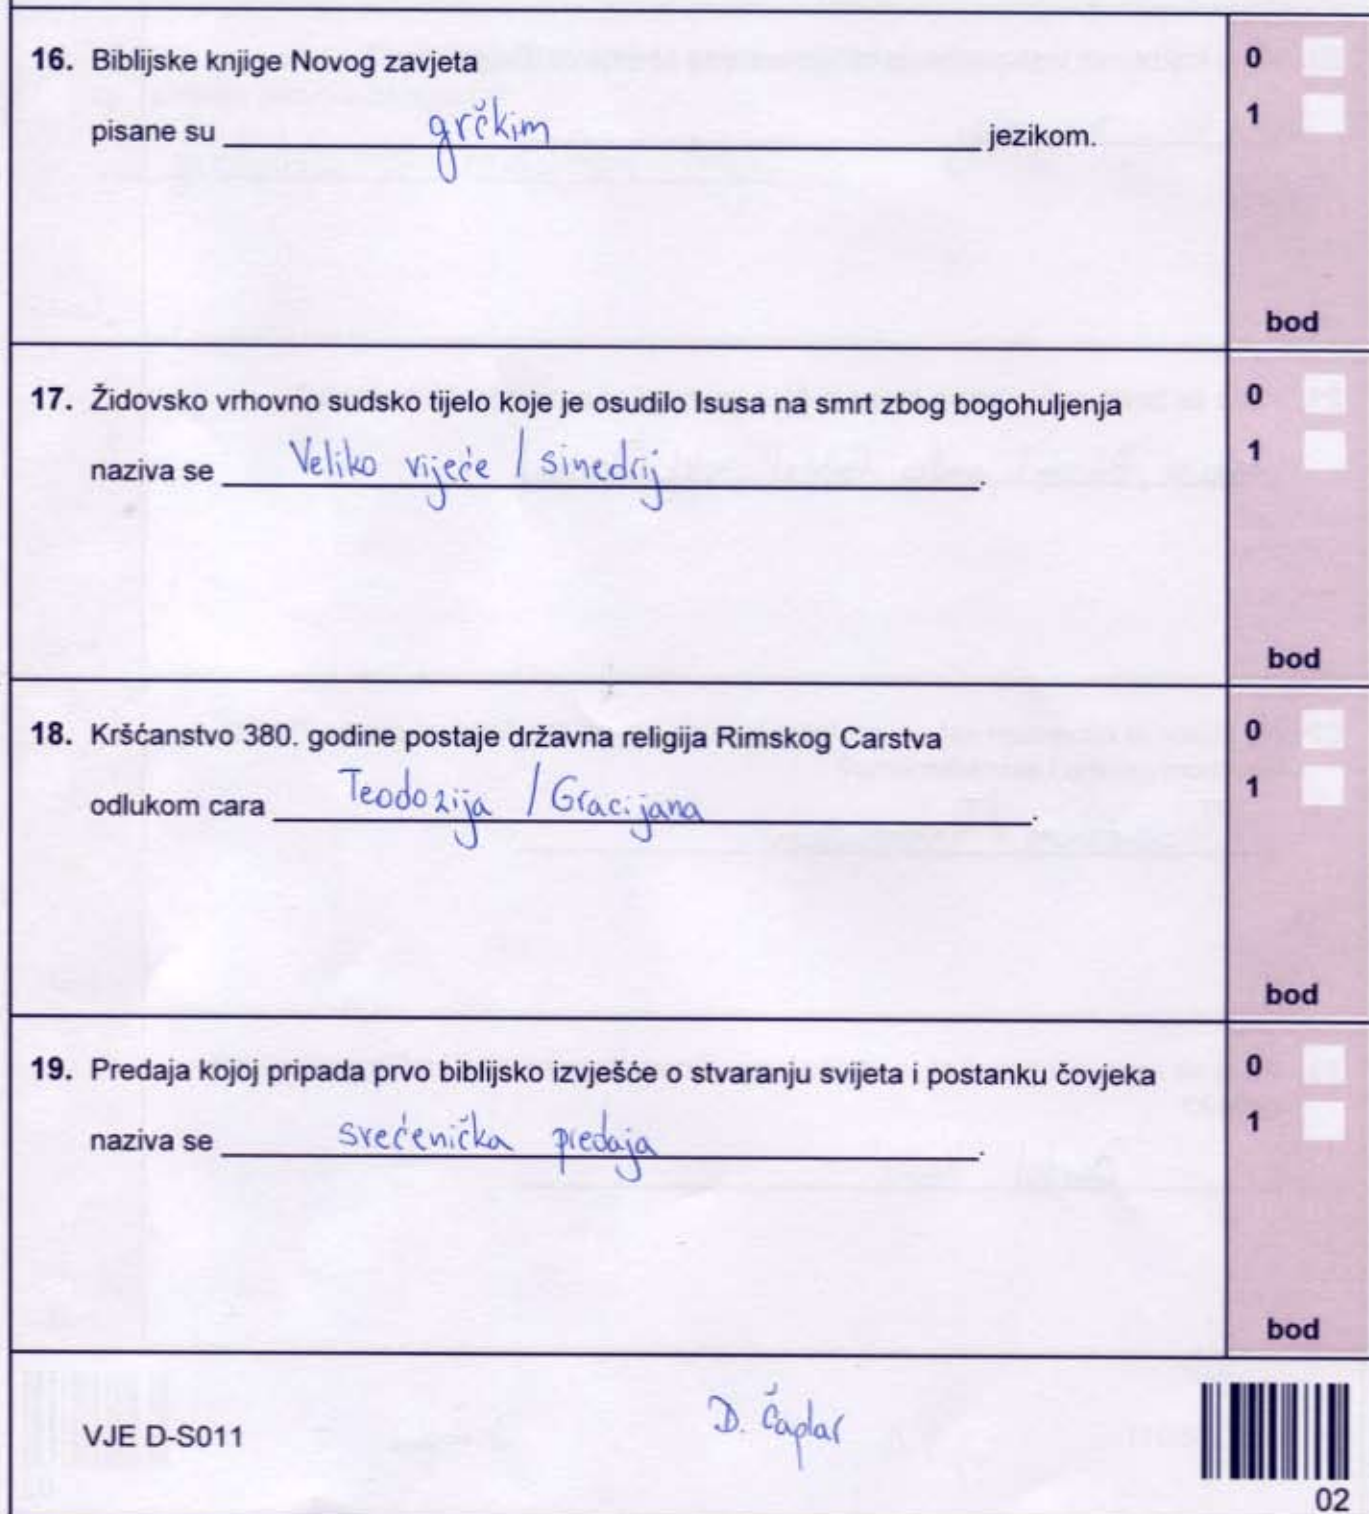 16. Biblijske knjige Novog zavjeta
pisane su grčkim jezikom.
0
1
bod
17. Židovsko vrhovno sudsko tijelo koje je osudilo Isusa na smrt zbog bogohuljenja
naziva se Veliko vijeće / sinedrij.
0
1
bod
18. Kršćanstvo 380. godine postaje državna religija Rimskog Carstva
odlukom cara Teodozija / Gracijana.
0
1
bod
19. Predaja kojoj pripada prvo biblijsko izvješće o stvaranju svijeta i postanku čovjeka
naziva se svećenička predaja.
0
1
bod
VJE D-S011
D. Čaplar
02